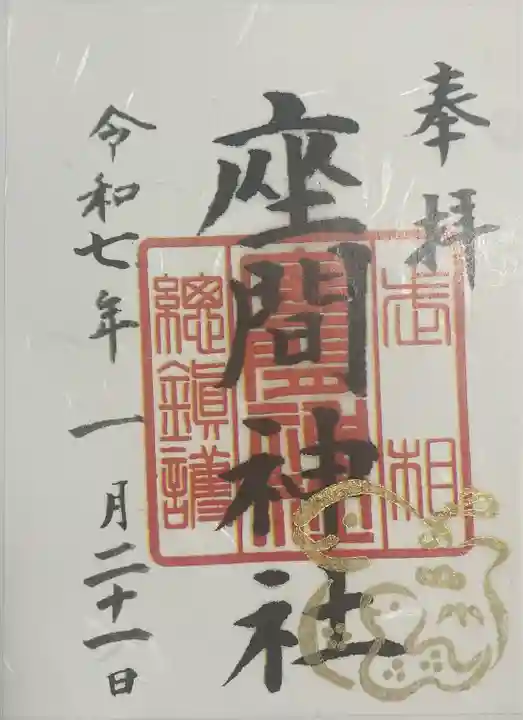 奉拝
武相
座間神社
座間神社
總鎮護
令和七年一月二十一日